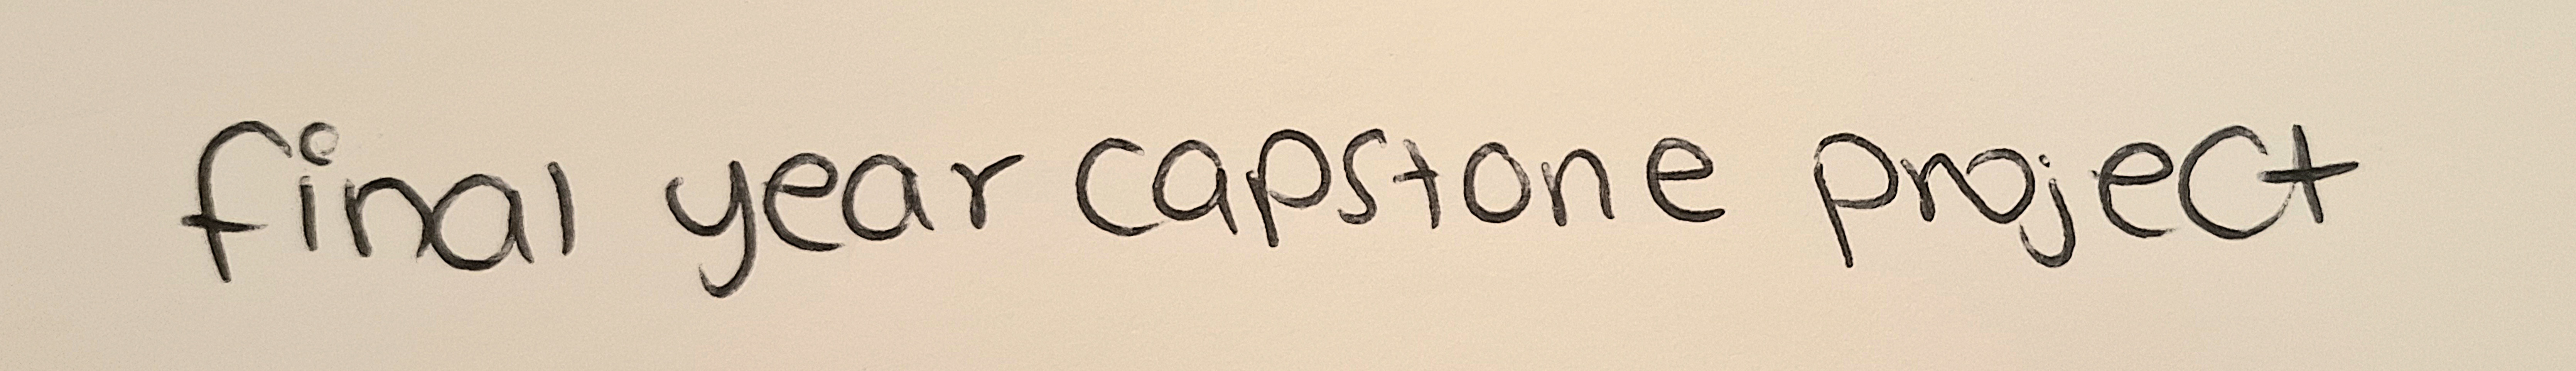 final year capstone project